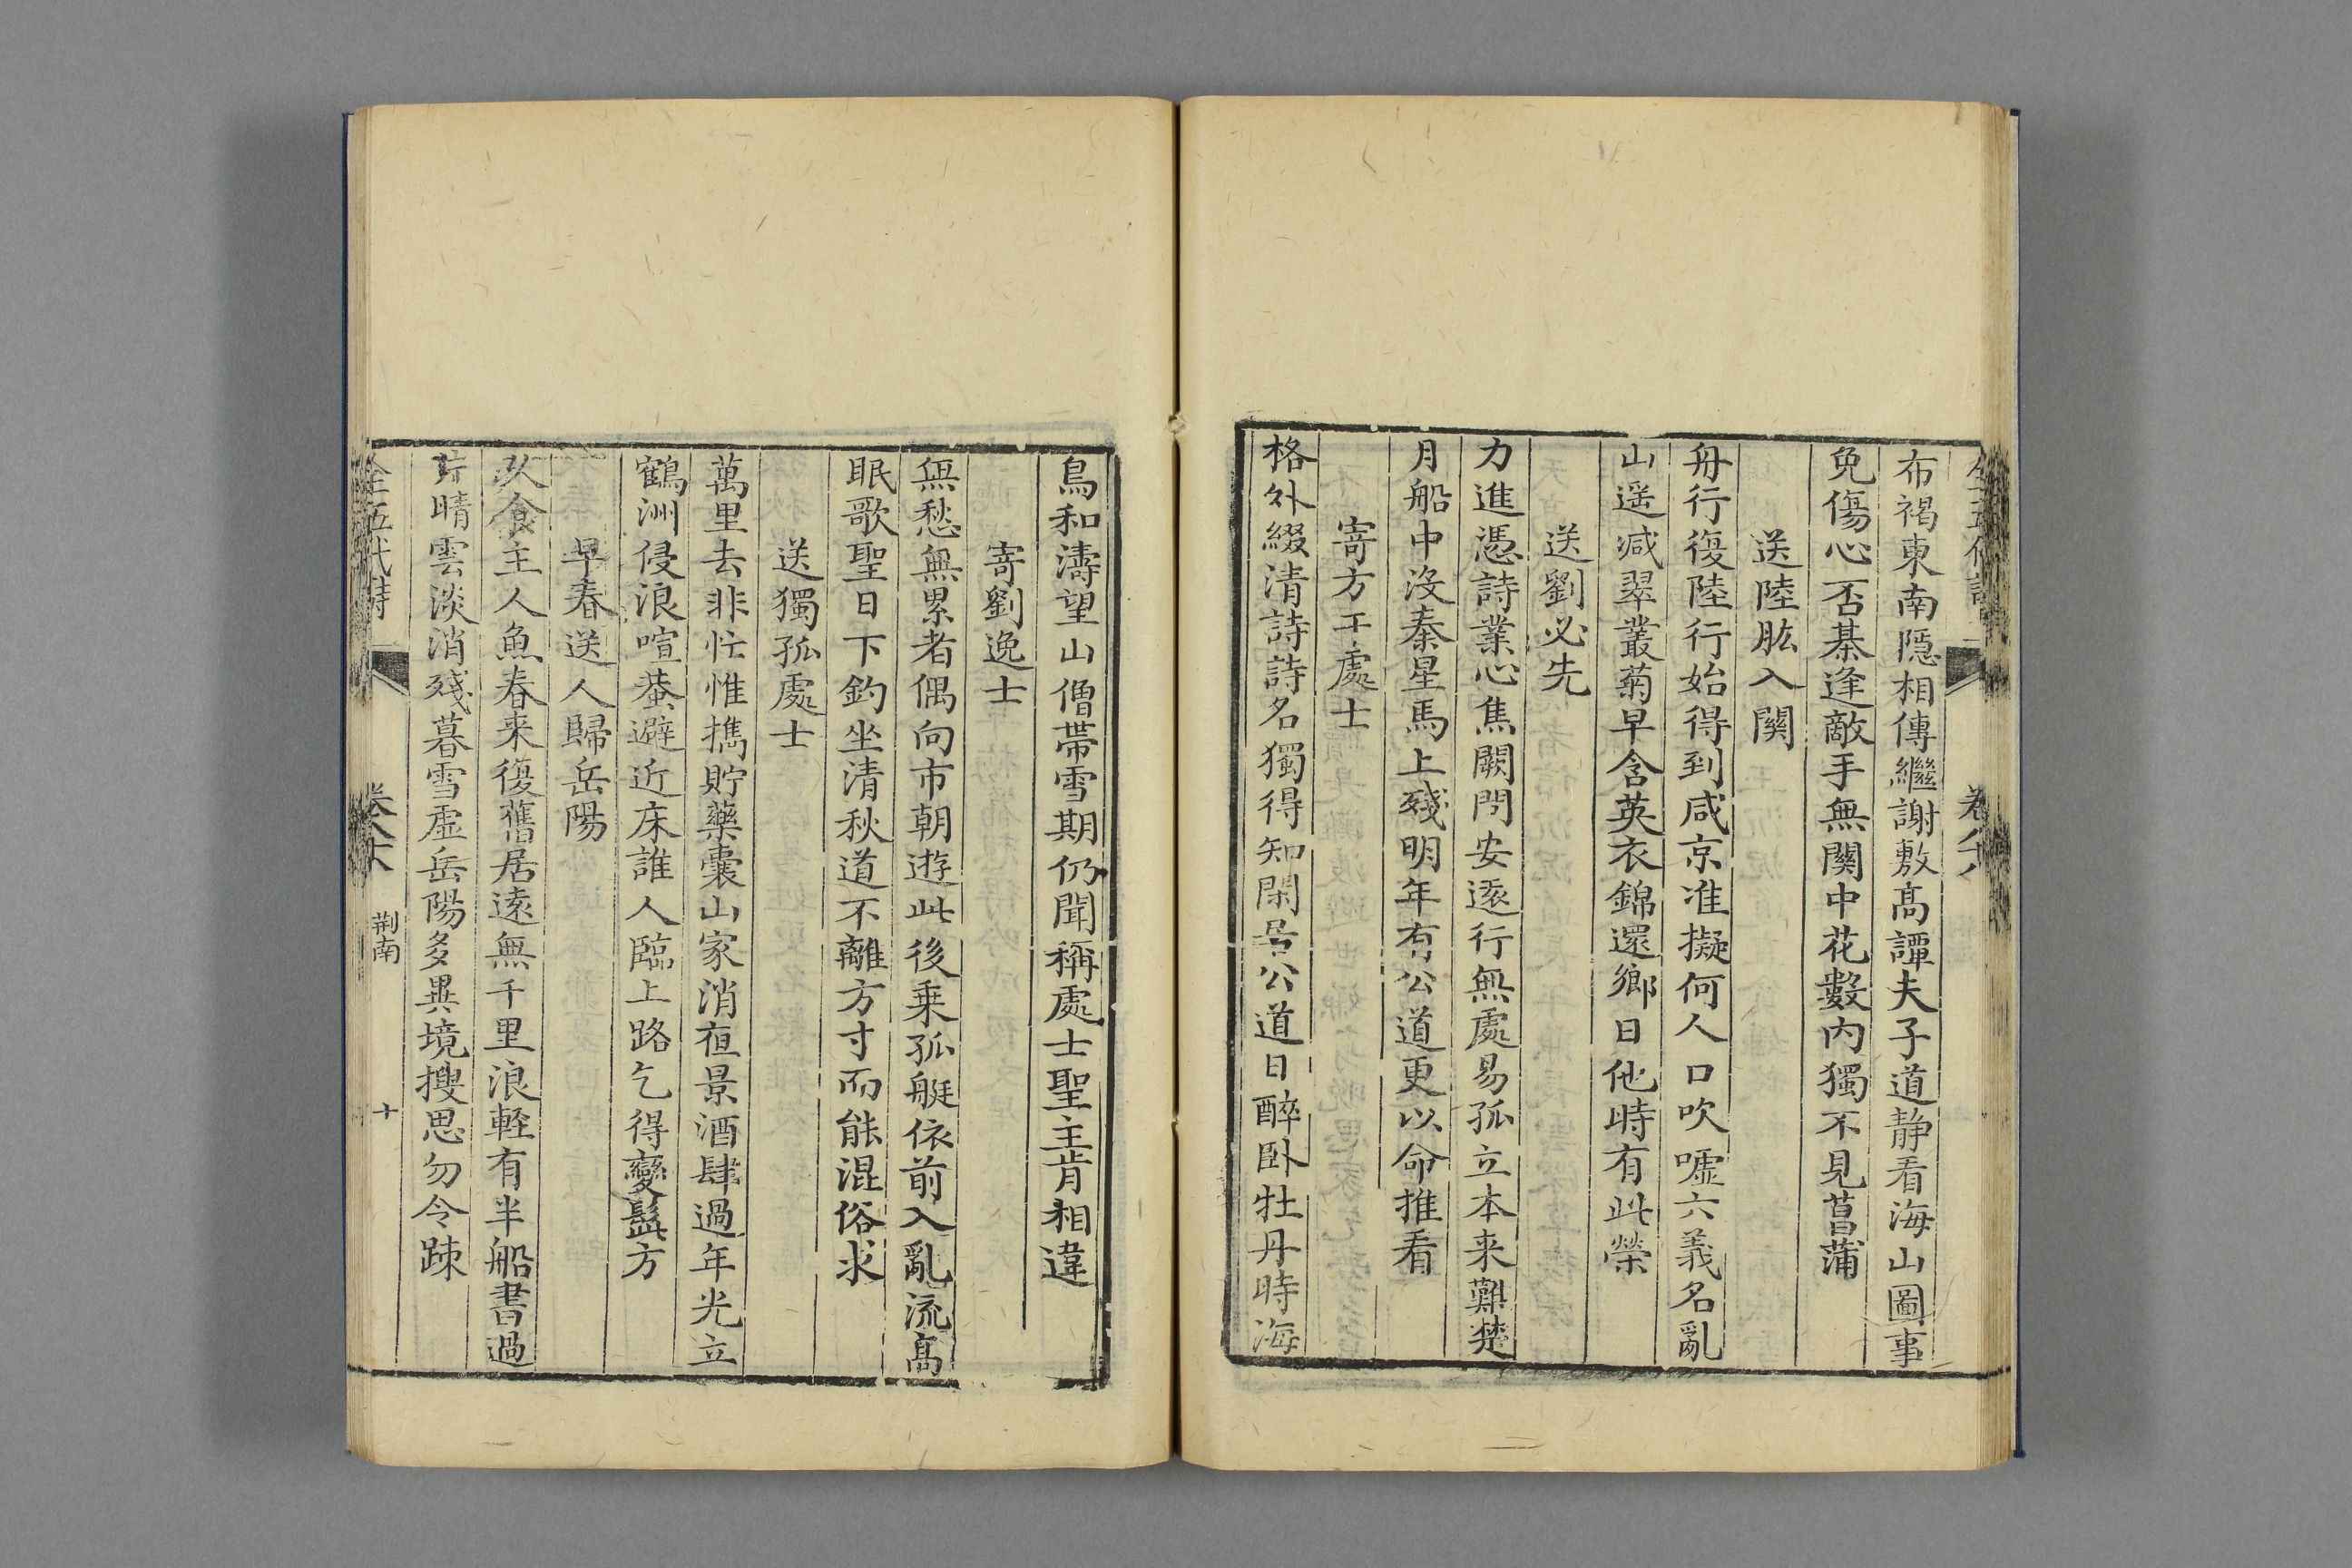 布褐東南隱相傳繼謝敷髙譚夫子道静看海山圖事
免傷心否棊逢敵手無關中花數内獨不見菖蒲
送陸肱入關
舟行復陸行始得到咸京准擬何人口吹嘘六義名亂
山遥减翠叢菊早含英衣錦還鄉日他時有此榮
送劉必先
力進憑詩業心焦闕問安逐行無處易孤立本来難楚
月船中没秦星馬上殘明年有公道更以命推看
寄方干處士
格外綴清詩詩名獨得知閑居公道日醉卧牡丹時海
鳥和濤望山僧帶雪期仍聞稱處士聖主肯相違
寄劉逸士
無愁無累者偶向市朝遊此後乗孤艇依前入亂流髙
眠歌聖日下釣坐清秋道不離方寸而能混俗求
送獨孤處士
萬里去非忙惟擕貯藥囊山家消夜景酒肆過年光立
鶴洲侵浪喧蛬避近床誰人臨上路乞得變髭方
早春送人歸岳陽
久食主人魚春来復舊居遠無千里浪輕有半船書過
片晴雲淡消殘暮雪虚岳陽多異境搜思勿令踈
全五代詩
荆南
十